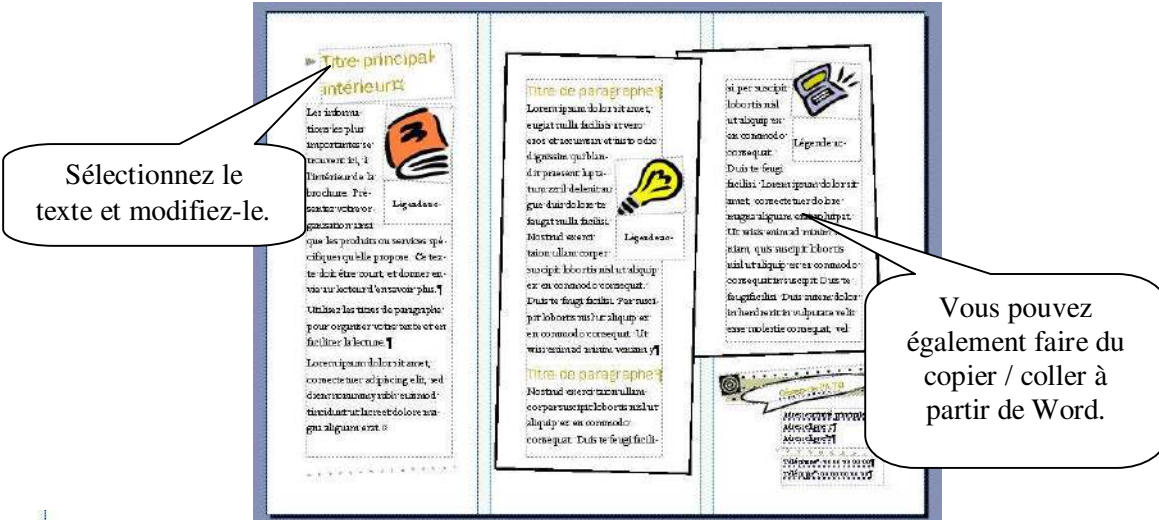 Sélectionnez le
texte et modifiez-le.
Titre principal
intérieur
Les informa-
tions les plus
importantes se
trouvent ici, à
l'intérieur de la
brochure. Pré-
sentez votre or-
ganisation ainsi
que les produits ou services spé-
cifiques qu'elle propose. Ce tex-
te doit être court, et donner en-
vie au lecteur d'en savoir plus.¶
Utilisez les titres de paragraphe
pour organiser votre texte et en
faciliter la lecture.¶
Lorem ipsum dolor sit amet,
consectetuer adipiscing elit, sed
diem nonummy nibh euismod
tincidunt ut lacreet dolore ma-
gna aliguam erat.
Légende ac-
Titre de paragraphe¶
Lorem ipsum dolor sit amet,
eugiat nulla facilisis at vero
eros et accumsan et iusto odio
dignissim qui blan-
dit praesent lupta-
tum zzril delenit au
gue duis dolore te
feugat nulla facilisi.
Nostrud exerci
taion ullamcorper
suscipit lobortis nisl ut aliquip
ex en commodo consequat.
Duis te feugi facilisi. Per susci-
pit lobortis nisl ut aliquip ex
en commodo consequat. Ut
wisi enim ad minim veniam y¶
Légende ac-
Titre de paragraphe¶
Nostrud exerci taion ullam-
corper suscipit lobortis nisl ut
aliquip ex en commodo
consequat. Duis te feugi facili-
si per suscipit
lobortis nisl
ut aliquip ex
en commodo
consequat.
Duis te feugi
facilisi. Lorem ipsum dolor sit
amet, consectetuer dolore
magna aliguam erat volutpat.
Ut wisis enim ad minim ve-
niam, quis suscipit lobortis
nisl ut aliquip ex en commodo
consequat in suscipit Duis te
feugifacilisi. Duis autem dolor
in hendrerit in vulputate velit
esse molestie consequat, vel
Légende ac-
Vous pouvez
également faire du
copier / coller à
partir de Word.